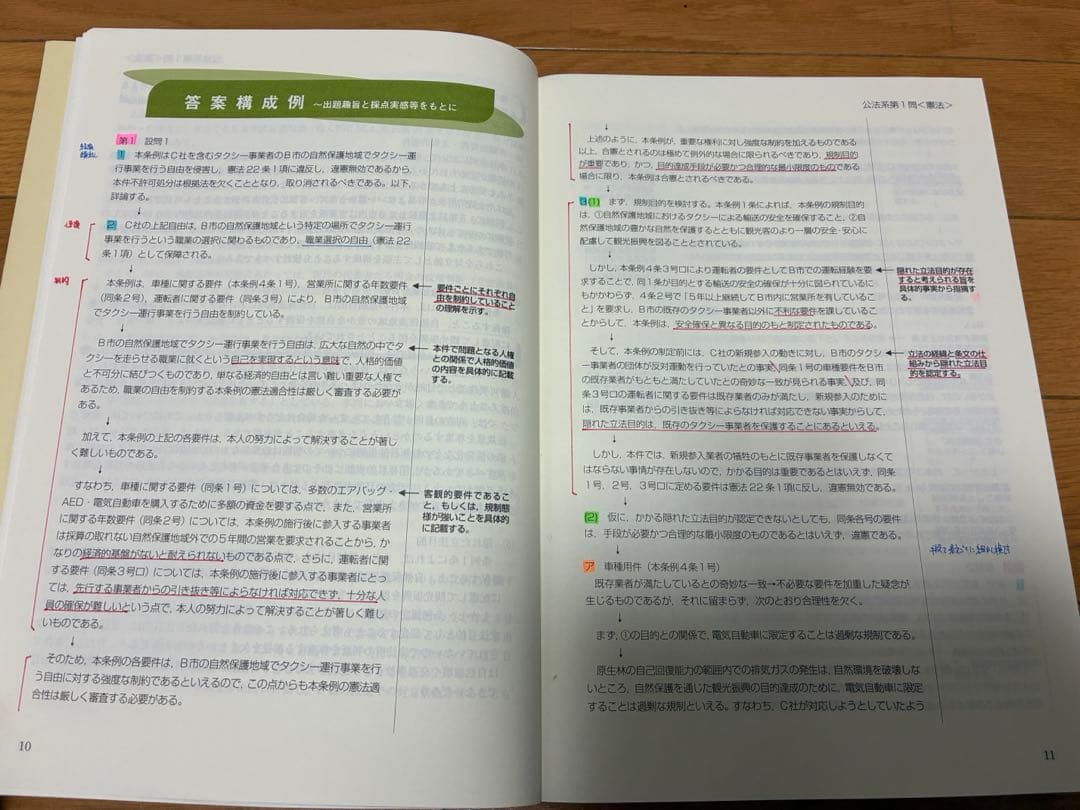 答案構成例 ～出題趣旨と採点実感等をもとに
第1 設問1
1 本条例はC社を含むタクシー事業者のB市の自然保護地域でタクシー運
行事業を行う自由を侵害し、憲法22条1項に違反し、違憲無効であるから、
本件不許可処分は根拠法を欠くこととなり、取り消されるべきである。以下、
詳論する。
↓
2 C社の上記自由は、B市の自然保護地域という特定の場所でタクシー運行
事業を行うという職業の選択に関わるものであり、職業選択の自由（憲法22
条1項）として保障される。
↓
本条例は、車種に関する要件（本条例4条1号）、営業所に関する年数要件
（同条2号）、運転者に関する要件（同条3号）により、B市の自然保護地域
でタクシー運行事業を行う自由を制約している。
要件ごとにそれぞれ自
由を制約していること
の理解を示す。
↓
B市の自然保護地域でタクシー運行事業を行う自由は、広大な自然の中でタ
クシーを走らせる職業に就くという自己を実現するという意味で、人格的価値
と不可分に結びつくものであり、単なる経済的自由とは言い難い重要な人権で
あるため、職業の自由を制約する本条例の憲法適合性は厳しく審査する必要が
ある。
本件で問題となる人権
との関係で人格的価値
の内容を具体的に記載
する。
↓
加えて、本条例の上記の各要件は、本人の努力によって解決することが著し
く難しいものである。
↓
すなわち、車種に関する要件（同条1号）については、多数のエアバッグ・
AED・電気自動車を購入するために多額の資金を要する点で、また、営業所
に関する年数要件（同条2号）については、本条例の施行後に参入する事業者
は採算の取れない自然保護地域外での5年間の営業を要求されることから、か
なりの経済的基盤がないと耐えられないものである点で、さらに、運転者に関
する要件（同条3号ロ）については、本条例の施行後に参入する事業者にとっ
ては、先行する事業者からの引き抜き等によらなければ対応できず、十分な人
員の確保が難しいという点で、本人の努力によって解決することが著しく難し
いものである。
客観的要件であるこ
と、もしくは、規制態
様が強いことを具体的
に記載する。
↓
そのため、本条例の各要件は、B市の自然保護地域でタクシー運行事業を行
う自由に対する強度な制約であるといえるので、この点からも本条例の憲法適
合性は厳しく審査する必要がある。
10
公法系第1問＜憲法＞
↓
上述のように、本条例が、重要な権利に対し強度な制約を加えるものである
以上、合憲とされるのは極めて例外的な場合に限られるべきであり、規制目的
が重要であり、かつ、目的達成手段が必要かつ合理的な最小限度のものである
場合に限り、本条例は合憲とされるべきである。
3(1) まず、規制目的を検討する。本条例1条によれば、本条例の規制目的
は、①自然保護地域におけるタクシーによる輸送の安全を確保すること、②自
然保護地域の豊かな自然を保護するとともに観光客のより一層の安全・安心に
配慮して観光振興を図ることとされている。
↓
しかし、本条例4条3号ロにより運転者の要件としてB市での運転経験を要
求することで、同1条が目的とする輸送の安全の確保が十分に図られているに
もかかわらず、4条2号で「5年以上継続してB市内に営業所を有しているこ
と」を要求し、B市の既存のタクシー事業者以外に不利な要件を課しているこ
とからして、本条例は、安全確保と異なる目的のもと制定されたものである。
隠れた立法目的が存在
すると考えられる旨を
具体的事実から指摘す
る。
↓
そして、本条例の制定前には、C社の新規参入の動きに対し、B市のタクシ
ー事業者の団体が反対運動を行っていたとの事実、同条1号の車種要件をB市
の既存業者がもともと満たしていたとの奇妙な一致が見られる事実、及び、同
条3号ロの運転者に関する要件は既存業者のみが満たし、新規参入のために
は、既存事業者からの引き抜き等によらなければ対応できない事実からして、
隠れた立法目的は、既存のタクシー事業者を保護することにあるといえる。
立法の経緯と条文の仕
組みから隠れた立法目
的を認定する。
↓
しかし、本件では、新規参入業者の犠牲のもとに既存事業者を保護しなくて
はならない事情が存在しないので、かかる目的は重要であるとはいえず、同条
1号、2号、3号ロに定める要件は憲法22条1項に反し、違憲無効である。
↓
(2) 仮に、かかる隠れた立法目的が認定できないとしても、同条各号の要件
は、手段が必要かつ合理的な最小限度のものであるとはいえず、違憲である。
↓
ア 車種用件（本条例4条1号）
既存業者が満たしているとの奇妙な一致→不必要な要件を加重した疑念が
生じるものであるが、それに留まらず、次のとおり合理性を欠く。
↓
まず、①の目的との関係で、電気自動車に限定することは過剰な規制である。
↓
原生林の自己回復能力の範囲内での排気ガスの発生は、自然環境を破壊しな
いところ、自然保護を通じた観光振興の目的達成のために、電気自動車に限定
することは過剰な規制といえる。すなわち、C社が対応しようとしていたよう
11